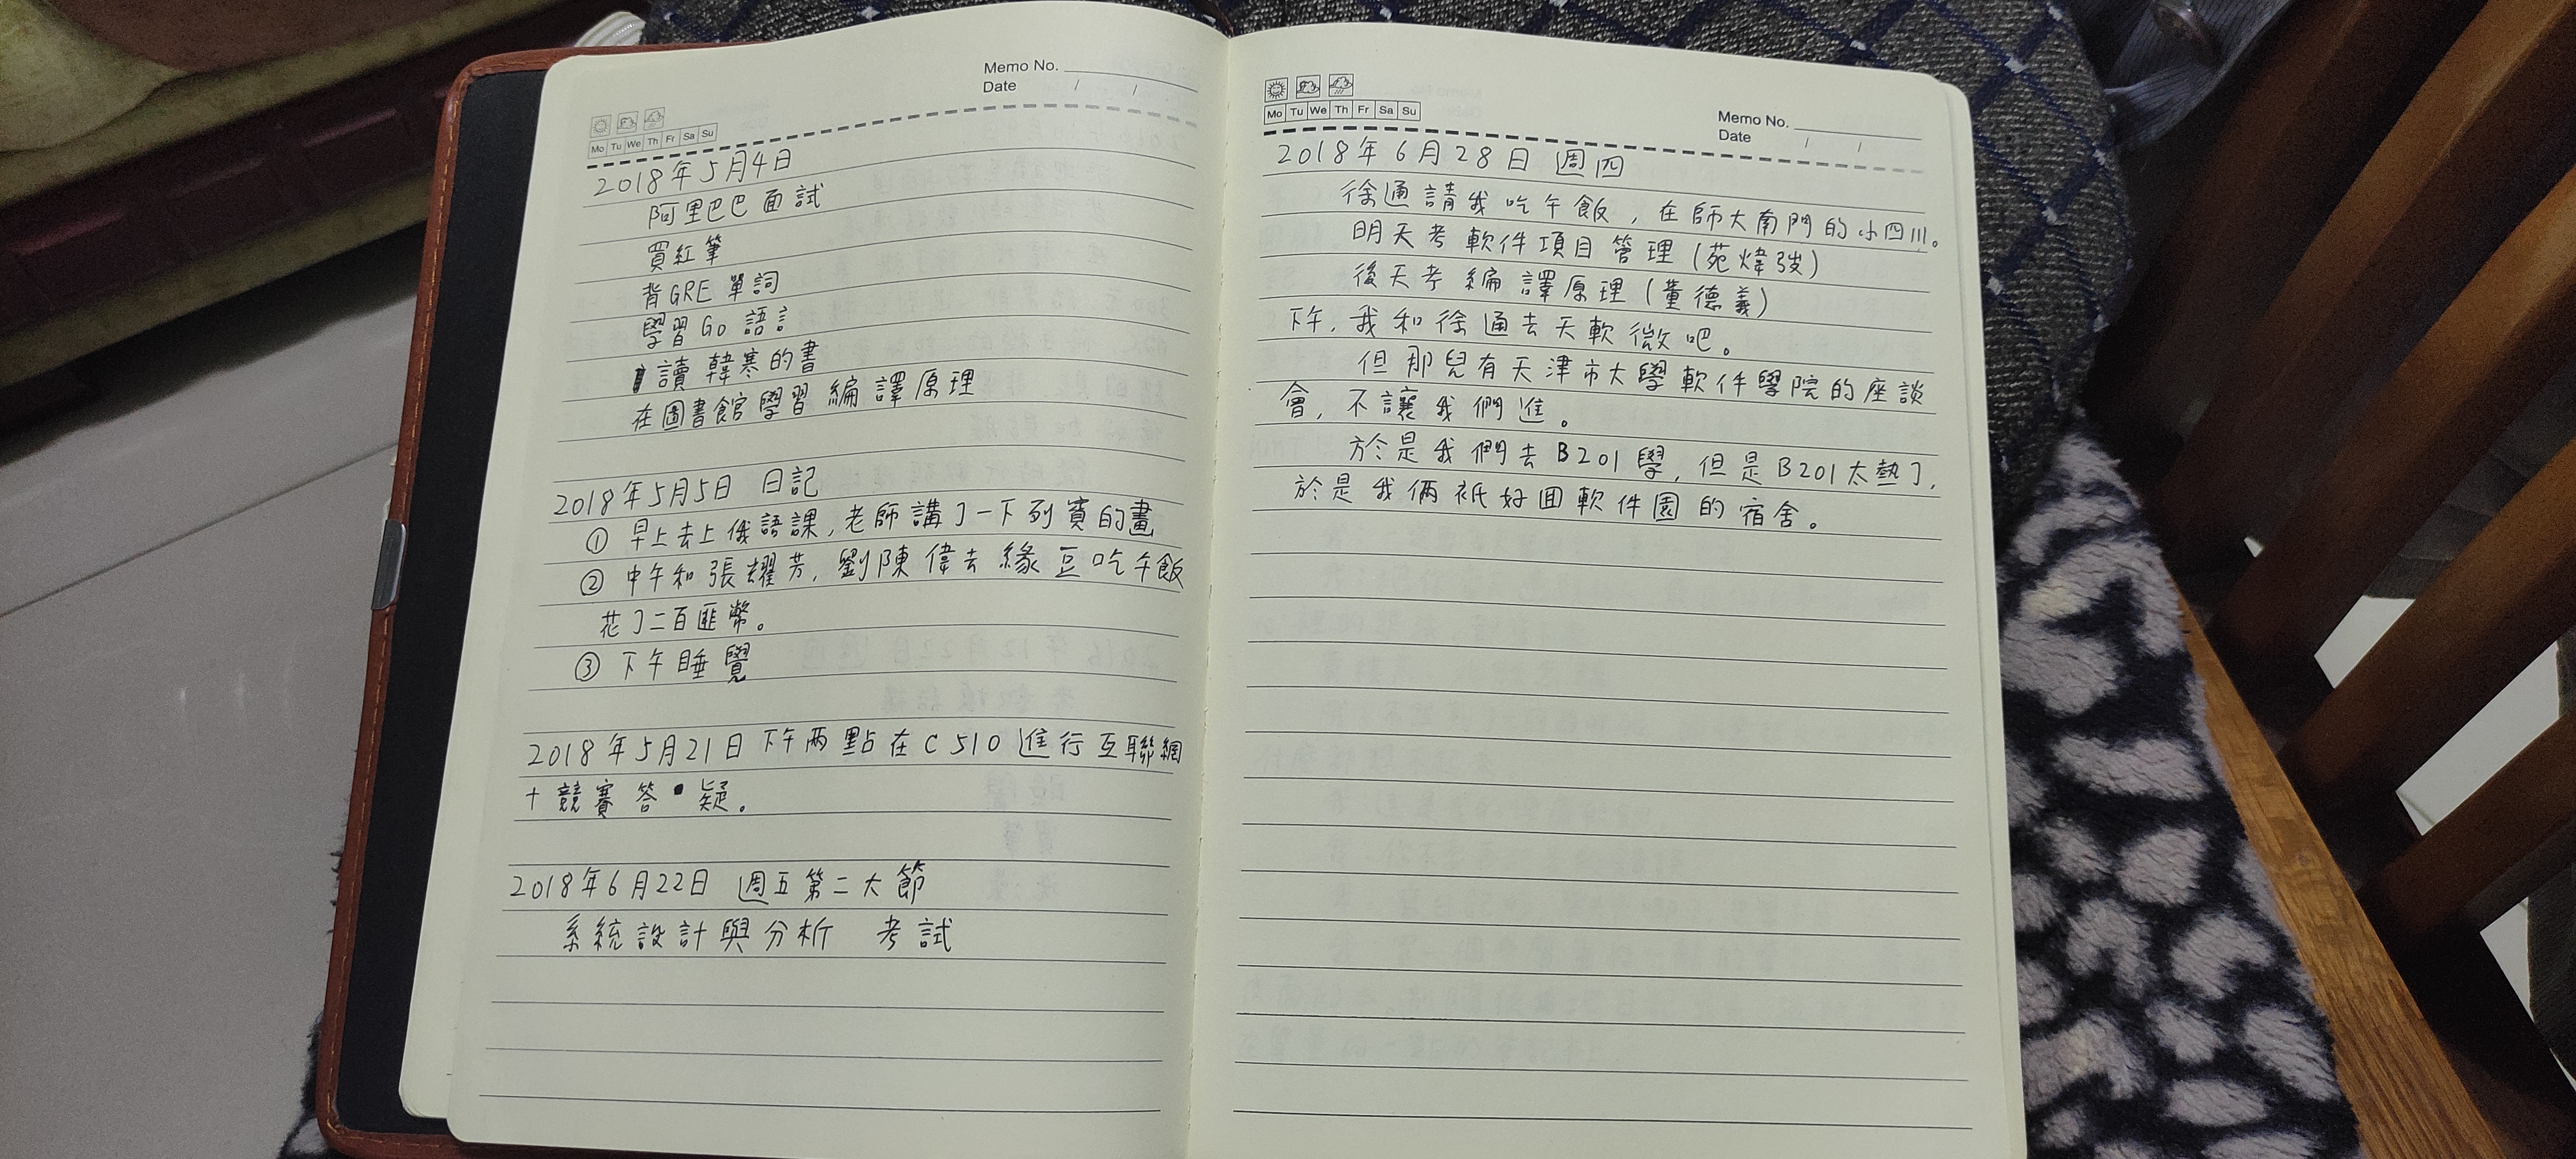 Memo No.
Date / /
Mo Tu We Th Fr Sa Su
2018年5月4日
阿里巴巴面試
買紅筆
背GRE單詞
學習Go語言
讀韓寒的書
在圖書館學習編譯原理
2018年5月5日 日記
① 早上去上俄語課,老師講了一下列賓的畫
② 中午和張耀芳,劉陳偉去緣豆吃午飯
花了二百匪幣。
③ 下午睡覺
2018年5月21日下午兩點在C510進行互聯網
+競賽答疑。
2018年6月22日 週五第二大節
系統設計與分析 考試
Memo No.
Date / /
Mo Tu We Th Fr Sa Su
2018年6月28日 週四
徐通請我吃午飯,在師大南門的小四川。
明天考軟件項目管理(苑煒弢)
後天考編譯原理(董德義)
下午,我和徐通去天軟微吧。
但那兒有天津市大學軟件學院的座談
會,不讓我們進。
於是我們去B201學,但是B201太熱了,
於是我倆祇好回軟件園的宿舍。